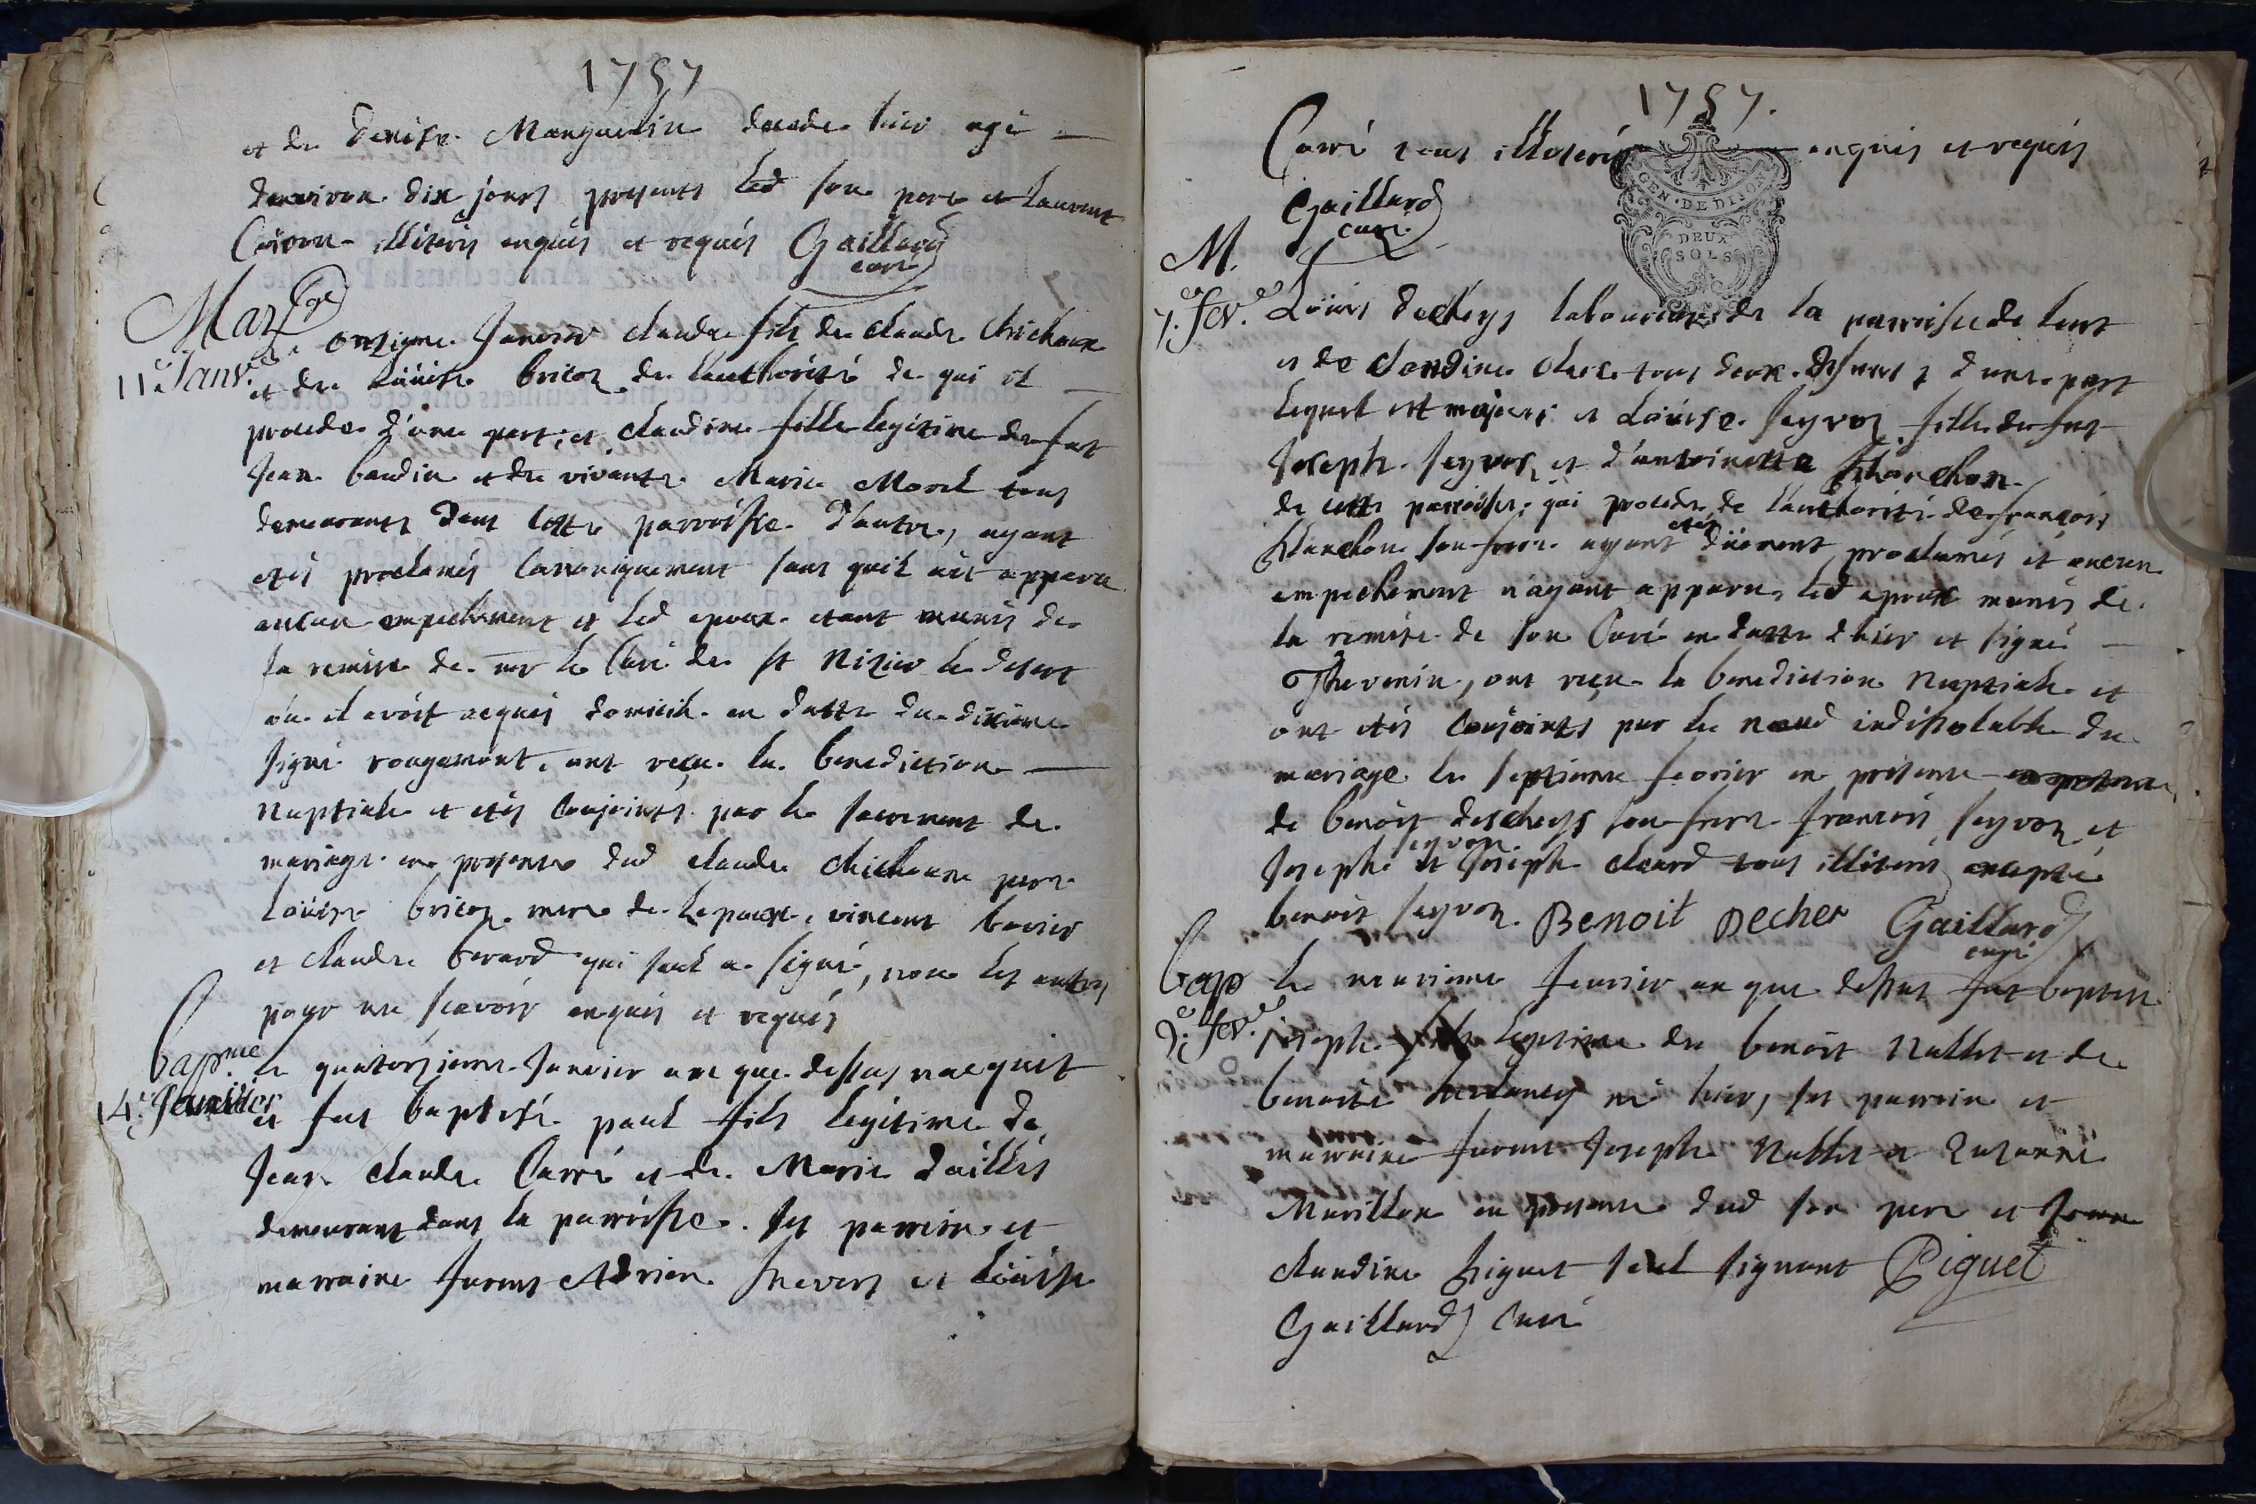 1757
et de Denise Manguelin decede hier agé
denviron dix jours presents led son pere et laurent
illiterés enquis et requis Gaillard
curé
Mar.ge
11.e Janv.er
onzieme Janvier claude fils de claude chichoux
et de Loüise bricoz de l'authorité de qui il
procede d'une part, et claudine fille legitime de fut
Jean baudin et de vivante Marie Morel tous
demeurants dans cette parroisse d'autre, ayant
etés proclamés canoniquement sans quil ait apparu
aucun empechement et led epoux etant munis de
la remise de mr le Curé de st Nizier le desert
où il avoit acquis domicile en datte du dixieme
signé rougemont, ont reçu la benediction
Nuptiale et etés conjoints par le sacrement de
mariage en presence dud claude chichoux pere
Loüise bricoz mere de l'epoux, vincent
et claude berard qui seul a signé, non les autres
pour ne sçavoir enquis et requis
bap.me
14.e Janvier
le quatorzieme Janvier an que dessus nacquit
et fut baptisé paul fils legitime de
Jean claude Carré et de Marie daillés
demeurant dans la parroisse. ses parrein et
marraine furent Adrien et Loüise
1757.
Carré tous illiterés enquis et requis
Gaillard
curé
GEN. DE DIJON
DEUX
SOLS
M.
7.e fev.er
Loüis Decheys laboureur de la parroisse de lent
et de claudine tous deux defunts d'une part
lequel est majeur et Loüise seyvoz fille de fut
Joseph seyvoz et d'antoinette blanchon
de cette parroisse, qui procede de l'authorité de françois
blanchon son frere ayant etés düement proclamés et aucun
empechement n'ayant apparu, led epoux munis de
la remise de son Curé en datte d'hier et signé
Thevenin, ont reçu la benediction Nuptiale et
ont etés conjoints par le nœud indissoluble du
mariage le septieme fevrier en presence
de benoit descheys son frere françois seyvoz et
Joseph seyvoz et Joseph cleard tous illiterés excepté
benoit seyvoz. Benoit Decher Gaillard
curé
bap
9.e fev.er
le neuvieme fevrier an que dessus fut baptisé
joseph fils legitime de benoit Nallet et de
benoite né hier, ses parrein et
marraine furent Joseph Nallet et Suzanne
Marillon en presence dud son pere et Jean
claudine Piguet seul signant Piguet
Gaillard Curé